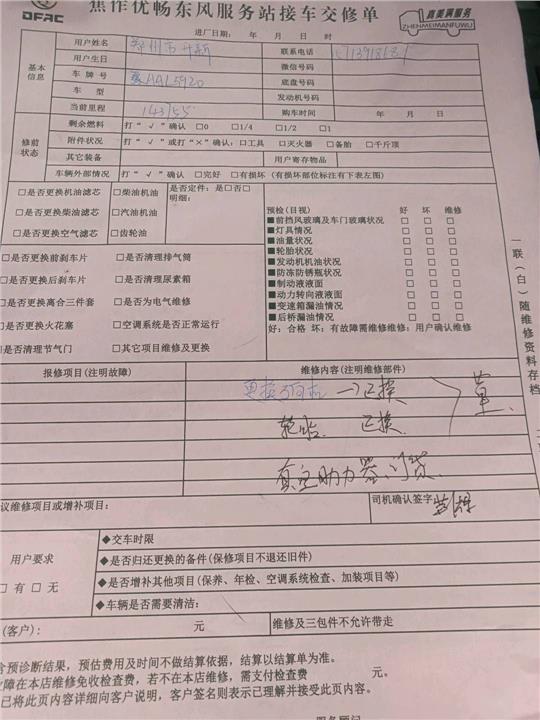 DFAC 焦作优畅东风服务站接车交修单 真美满服务
ZHENMEIMANFUWU
进厂日期: 年 月 日 时
基本信息
用户姓名 郑州市 联系电话
用户生日 微信号码
车牌号 AAL5920 底盘号码
车型 发动机号码
当前里程 143155 购车时间 年 月 日
修前状态
剩余燃料 打“√”确认 □0 □1/4 □1/2 □1
附件状况 打“√”或打“×”确认:□工具 □灭火器 □备胎 □千斤顶
其它装备 用户寄存物品
车辆外部情况 打“√”确认 □完好 □有损坏(有损坏部位标注有下表左图)
□是否更换机油滤芯 □柴油机油 是否定件:是□否□
明细:
□是否更换柴油滤芯 □汽油机油
□是否更换空气滤芯 □齿轮油
□是否更换前刹车片 □是否清理排气筒
□是否更换后刹车片 □是否清理尿素箱
□是否更换离合三件套 □是否为电气维修
□是否更换火花塞 □空调系统是否正常运行
□是否清理节气门 □其它项目维修及更换
预检(目视) 好 坏 维修
■前挡风玻璃及车门玻璃状况 □ □ □
■灯具情况 □ □ □
■油量状况 □ □ □
■轮胎状况 □ □ □
■发动机机油状况 □ □ □
■防冻防锈瓶状况 □ □ □
■制动液液面 □ □ □
■动力转向液液面 □ □ □
■变速箱漏油情况 □ □ □
■后桥漏油情况 □ □ □
好:合格 坏:有故障需维修维修:用户确认维修
一联(白)随维修资料存档
报修项目(注明故障) 维修内容(注明维修部件)
更换方向机 → 已换
轮胎 已换
真空助力器
议维修项目或增补项目: 司机确认签字
用户要求
□有 □无
◆交车时限
◆是否归还更换的备件(保修项目不退还旧件)
◆是否增补其他项目(保养、年检、空调系统检查、加装项目等)
◆车辆是否需要清洁:
(客户): 元 维修及三包件不允许带走
含预诊断结果,预估费用及时间不做结算依据,结算以结算单为准。
故障在本店维修免收检查费,若不在本店维修,需支付检查费 元。
已将此页内容详细向客户说明,客户签名则表示已理解并接受此页内容。
服务顾问